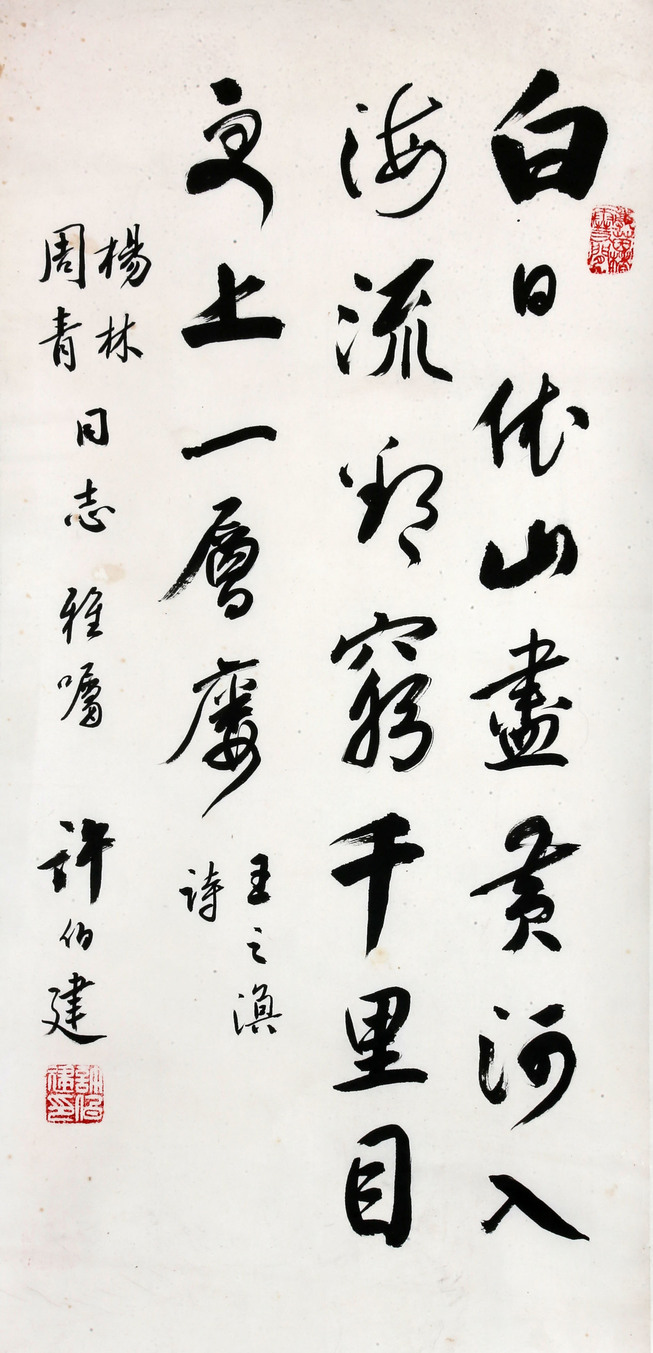 白日依山盡黃河入
海流欲窮千里目
更上一層廔
王之渙
詩
楊林
周青
同志雅囑
許伯建
許伯建印